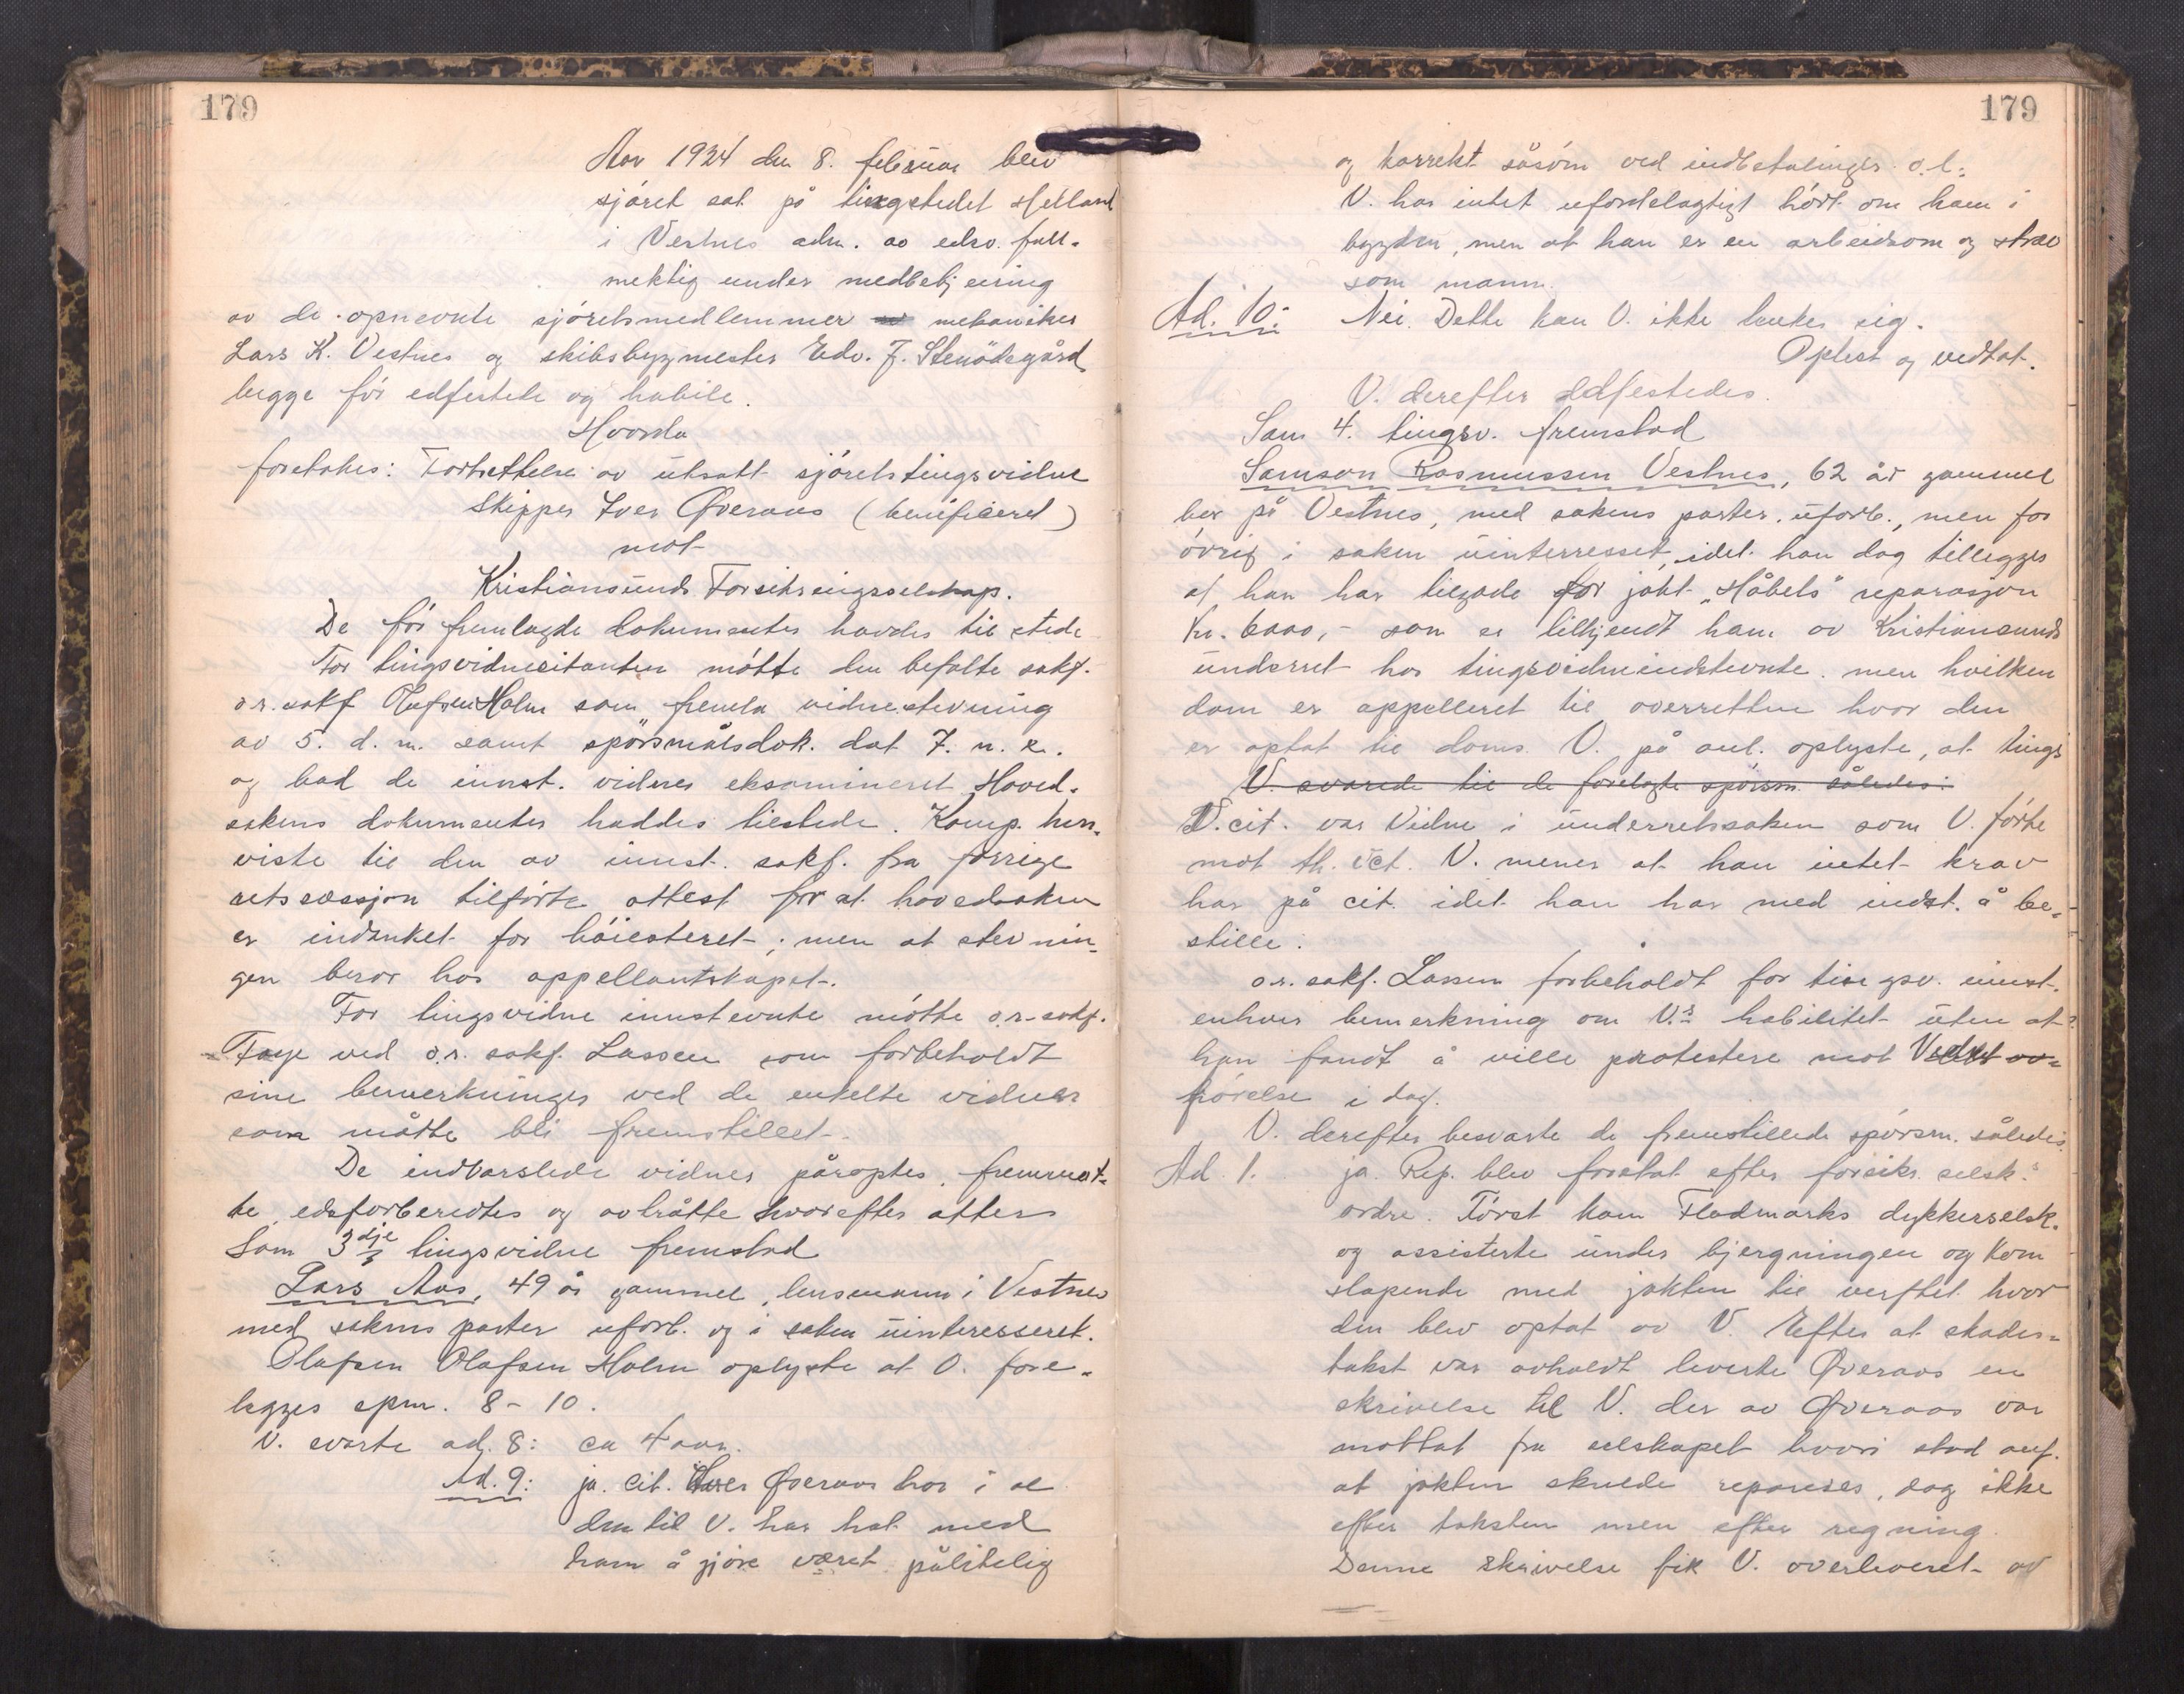 179
Aar 1924 den 8. februar blev
sjøret sat på tingstedet Helland
i Vestnes adm. av edsv. full-
mektig under medbetjening
av de opnevnte sjøretsmedlemmer mekaniker
Lars K. Vestnes og skibsbyggmester Edv. J. Stenödegård
begge før edfestede og habile.
Hvorda
foretokes: Fortsettelse av utsatt sjøretstingsvidne
Skipper Iver Øveraas (benificeret)
mot
Kristiansunds Forsikringsselskap.
De før fremlagde dokumenter havdes til stede
For tingsvidnecitanten møtte den befalte sakf.
o.r.sakf Olafsen Holm som fremla vidnestevning
av 5. d.m. samt spørsmålsdok. dat 7. n.k.
og bad de innst. vidner eksamineret. Hoved-
sakens dokumenter haddes tilstede. Komp. hen-
viste til den av innst. sakf. fra forrige
retssessjon tilførte attest for at hovedsaken
er indanket for høiesteret; men at stevnin-
gen beror hos appellantskapet.
For tingsvidne innstevnte møtte o.r.sakf.
Faye ved o.r. sakf. Lassen som forbeholdt
sine bemerkninger ved de enkelte vidner
som måtte bli fremstillet.
De indvarslede vidner påroptes, fremmøt-
te, edsforberedtes og avtråtte hvorefter atter
Som 3dje tingsvidne fremstod
Lars Aas, 49 år gammel, lensmann i Vestnes
med sakens parter uforb. og i saken uinteresseret.
Olafsen Olafsen Holm oplyste at V. fore-
legges spm. 8-10.
V. svarte ad. 8: ca 4 aar.
Ad. 9: ja. cit. Iver Øveraas har i al
den tid V. har hat med
ham å gjøre været pålitelig
179
og korrekt såsom ved indbetalinger o.l.
V. har intet ufordelagtigt hørt om ham i
bygden, men at han er en arbeidsom og stræv
som mann.
Ad. 10: Nei. Dette kan V. ikke tenke sig.
Oplest og vedtat.
V. derefter edfestedes.
Som 4. tingsv. fremstod
Samson Rasmussen Vestnes, 62 år gammel
bor på Vestnes, med sakens parter uforb., men for
øvrig i saken uinterresset, idet han dog tillegges
at han har tilgode for jakt "Håbets" reparasjon
kr. 6000,- som er tilkjendt ham av Kristiansunds
underret hos tingsvidneindstevnte. men hvilken
dom er appelleret til overretten hvor den
er optat til doms. V. på anl. oplyste, at tings
V. svarede til de forelagte spørsm. således:
V. cit. var Vidne i underretssaken som V. førte
mot th. ict. V. mener at han intet krav
har på cit. idet han har med indst. å be-
stille.
o.r. sakf. Lassen forbeholdt for tingsv. innst.
enhver bemerkning om V.s habilitet uten at
han fandt å ville protestere mot V
førelse i dag.
V. derefter besvarte de fremstillede spørsm. således:
Ad 1. ja. Rep. blev foretat efter forsikr. selsk.s
ordre. Først kom Fladmarks dykkerselsk.
og assisterte under bjergningen og kom
slapende med jakten til verftet hvor
den blev optat av V. Efter at skades-
takst var avholdt leverte Øveraas en
skrivelse til V. der av Øveraas var
mottat fra selskapet hvori stod anf.
at jakten skulde repareres, dog ikke
efter taksten men efter regning.
Denne skrivelse fik V. overleveret av